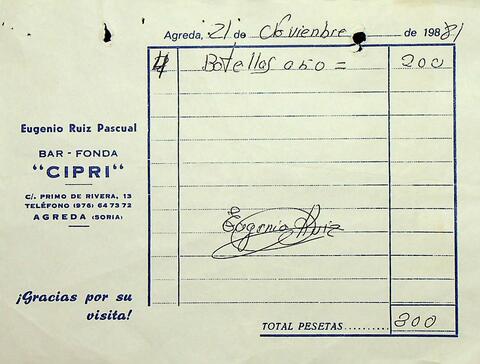 Agreda, 21 de Noviembre de 1981
4 Botellas a 50 = 200
Eugenio Ruiz Pascual
BAR - FONDA
"CIPRI"
C/. PRIMO DE RIVERA, 13
TELÉFONO (976) 64 73 72
AGREDA (SORIA)
Eugenio Ruiz
¡Gracias por su
visita!
TOTAL PESETAS.......... 200